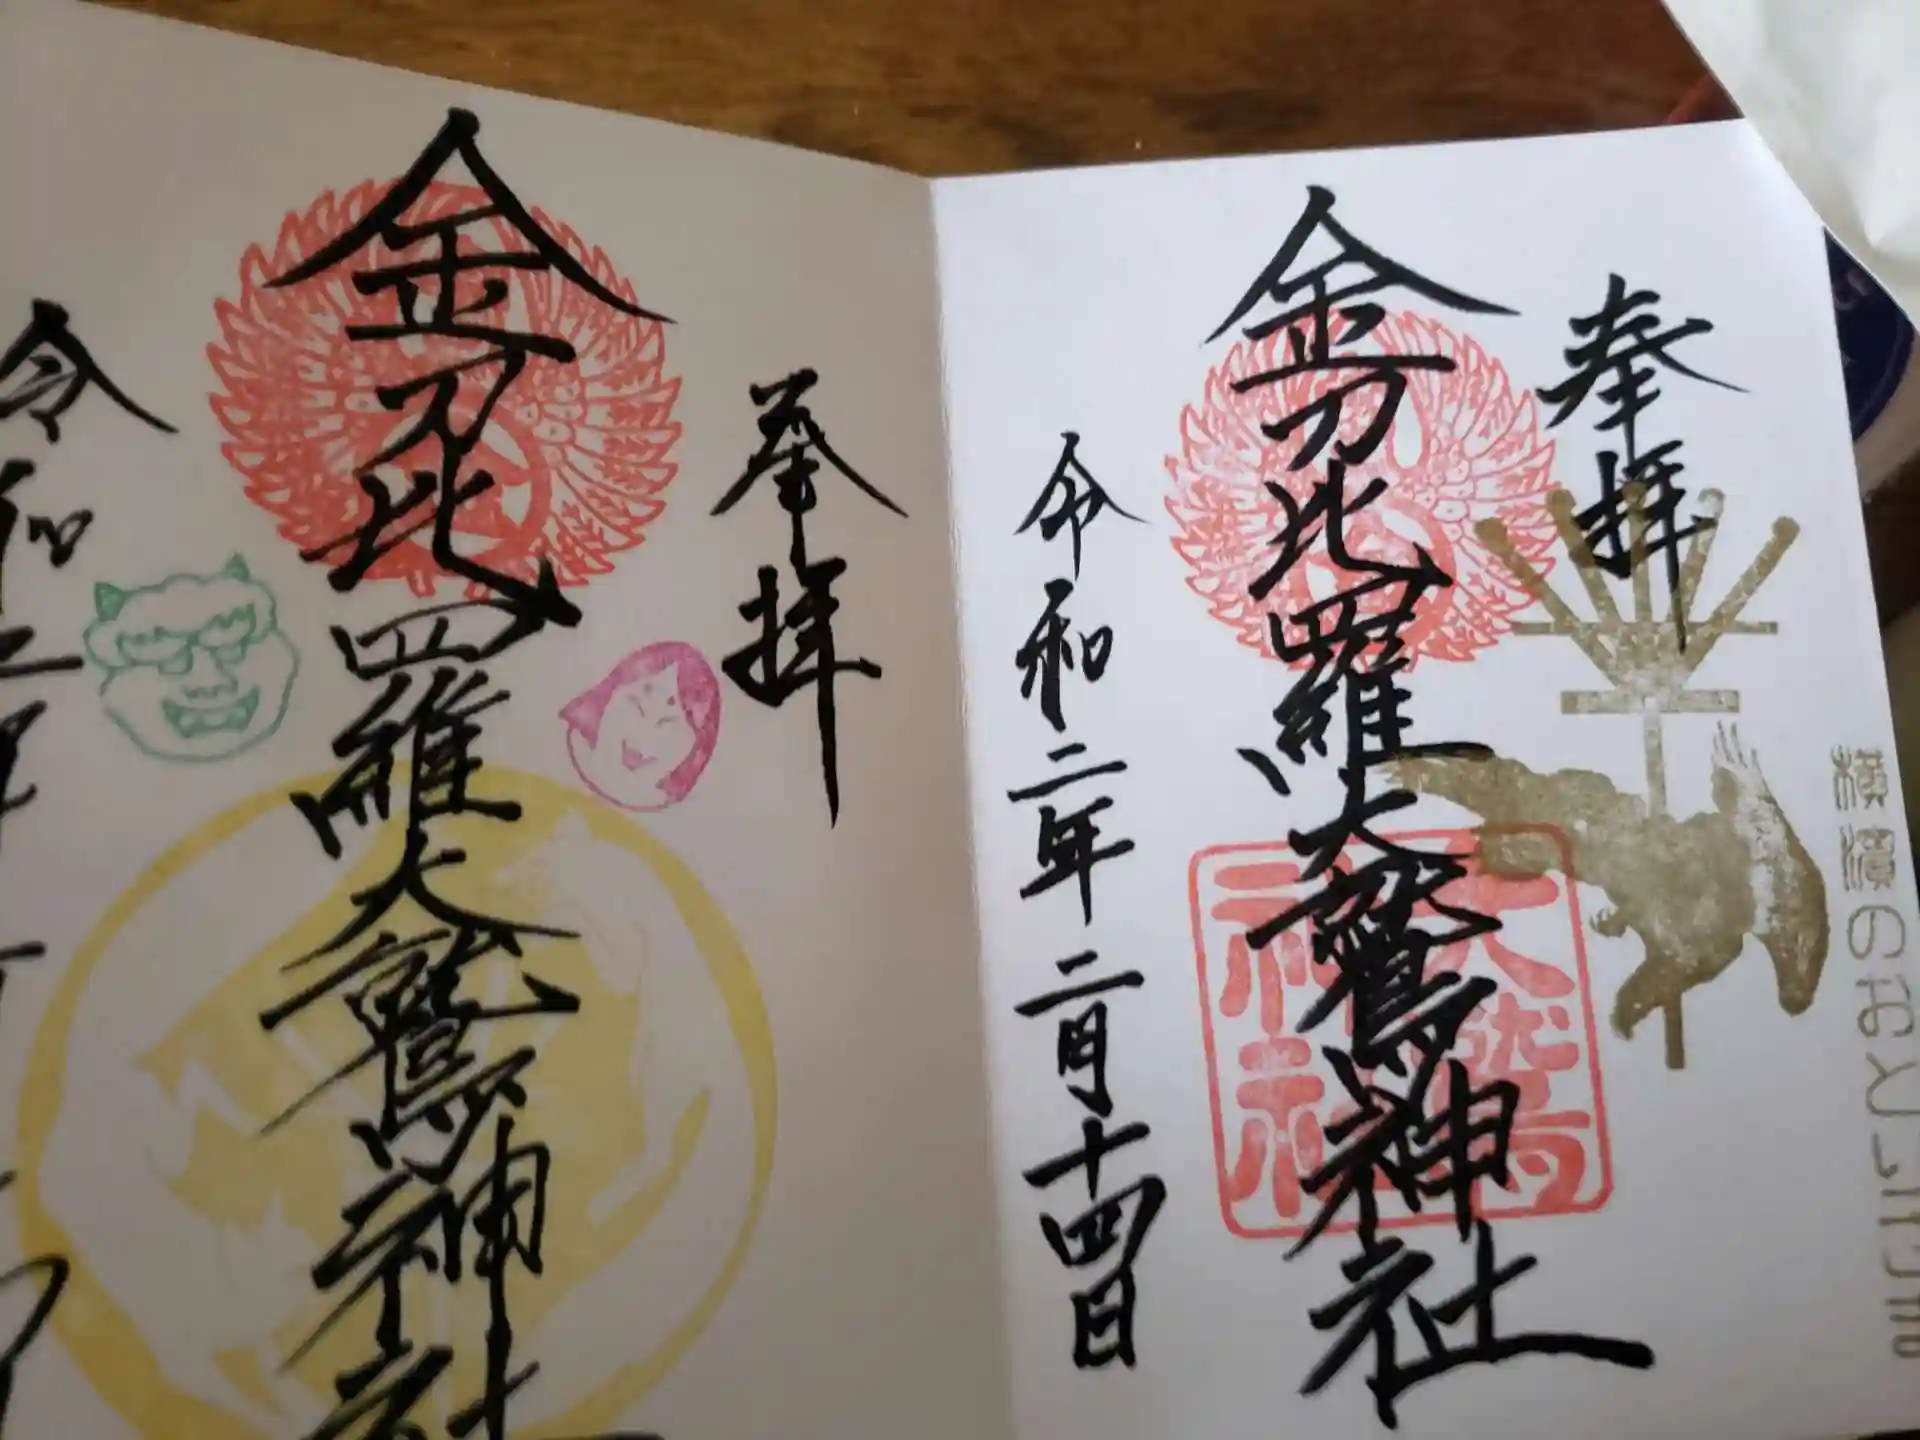 奉拝
横濱のおとりさま
金刀比羅大鷲神社
大鷲
神社
令和二年二月十四日
奉拝
金刀比羅大鷲神社
令和二年